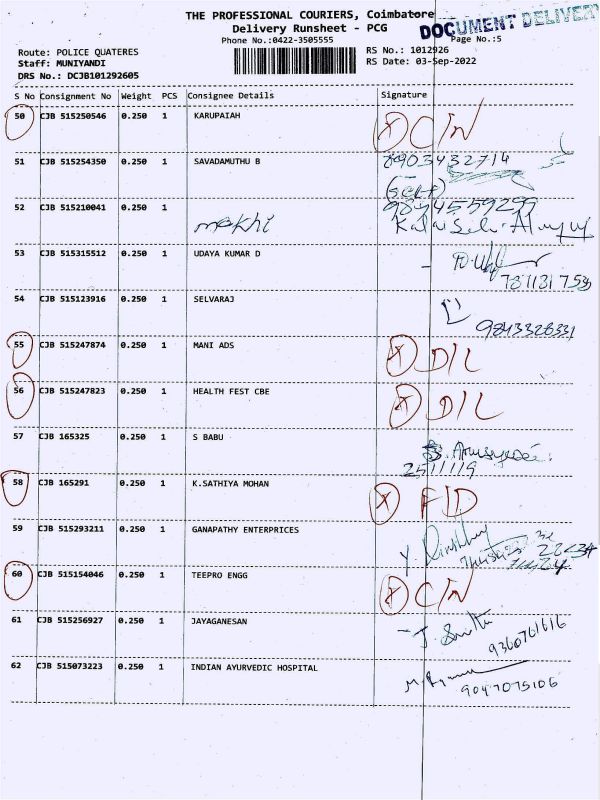 THE PROFESSIONAL COURIERS, Coimbatore
DOCUMENT DELIVERY
Delivery Runsheet - PCG
Phone No.:0422-3505555
Page No.:5
Route: POLICE QUATERES
RS No.: 1012926
Staff: MUNIYANDI
RS Date: 03-Sep-2022
DRS No.: DCJB101292605
S No Consignment No Weight PCS Consignee Details Signature
50 CJB 515250546 0.250 1 KARUPAIAH X C/N
51 CJB 515254350 0.250 1 SAVADAMUTHU B 8903432714
(self)
52 CJB 515210041 0.250 1 9894559299
53 CJB 515315512 0.250 1 UDAYA KUMAR D
54 CJB 515123916 0.250 1 SELVARAJ
9843328331
55 CJB 515247874 0.250 1 MANI ADS X D/L
56 CJB 515247823 0.250 1 HEALTH FEST CBE X D/L
57 CJB 165325 0.250 1 S BABU
58 CJB 165291 0.250 1 K.SATHIYA MOHAN X F/D
59 CJB 515293211 0.250 1 GANAPATHY ENTERPRICES
60 CJB 515154046 0.250 1 TEEPRO ENGG X C/N
61 CJB 515256927 0.250 1 JAYAGANESAN
9360761616
62 CJB 515073223 0.250 1 INDIAN AYURVEDIC HOSPITAL
9047075106